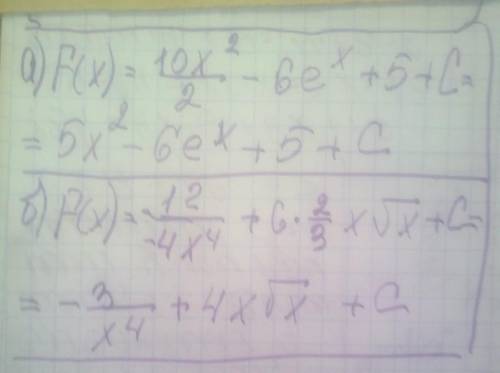 а) F(x) = 10x²/2 - 6eˣ + 5 + C =
= 5x² - 6eˣ + 5 + C
б) F(x) = 12/-4x⁴ + 6 · 2/3 x√x + C =
= - 3/x⁴ + 4x√x + C